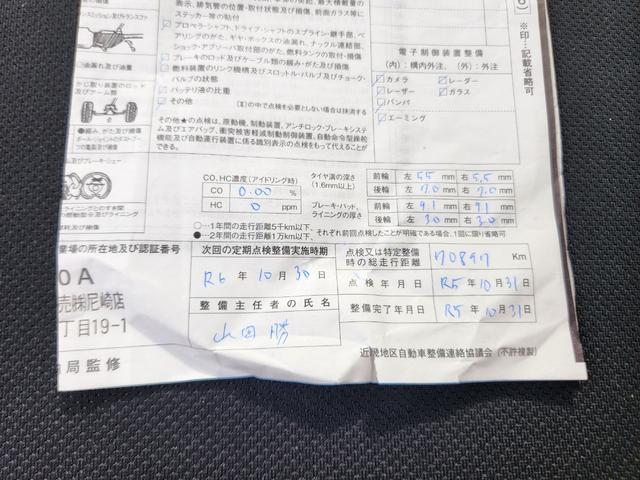 表示、排気管の位置・取付状態及び損傷、前面ガラス等に
ステッカー等の貼付
プロペラ・シャフト、ドライブ・シャフトのスプライン・継手部、ベ
アリングのがた、ギヤ・ボックスの油漏れ、ナックル連結部、
ショック・アブソーバ取付部のがた、燃料タンクの取付・損傷
ブレーキのロッド及びケーブル類の緩み・がた及び損傷
燃料装置のリンク機構及びスロットル・バルブ及びチョーク・
バルブの状態
バッテリ液の比重
その他
その他★の点検は、原動機、制動装置、アンチロック・ブレーキシステ
ム及びエアバッグ、衝突被害軽減制動制御装置、自動命令型操舵
機能及び自動運行装置に係る識別表示の点検をもって代えることが
できる。
油漏れ及び油量
かじ取り装置のロッド
及びアーム類
●緩み、がた及び損傷
ボール・ジョイントのダスト・ブー
ツの亀裂及び損傷
電子制御装置整備
(内):構内外注、(外):外注
カメラ
レーダー
レーザー
ガラス
バンパ
エーミング
※印…記載省略可
CO、HC濃度(アイドリング時)
CO 0.00 %
HC 0 ppm
タイヤ溝の深さ
(1.6mm以上)
ブレーキ・パッド、
ライニングの厚さ
前輪 左 5.5 mm 右 5.5 mm
後輪 左 7.0 mm 右 7.0 mm
前輪 左 9.1 mm 右 9.1 mm
後輪 左 3.0 mm 右 3.0 mm
○…1年間の走行距離5千km以下、
●…2年間の走行距離1万km以下、それぞれ前回点検したことが明確である場合、1回に限り省略可
業場の所在地及び認証番号
売㈱尼崎店
丁目19-1
局監修
次回の定期点検整備実施時期
R6 年 10 月 30 日
整備主任者の氏名
山田 勝
点検又は特定整備
時の総走行距離 170897 Km
点検年月日 R5 年 10 月 31 日
整備完了年月日 R5 年 10 月 31 日
近畿地区自動車整備連絡協議会 (不許複製)